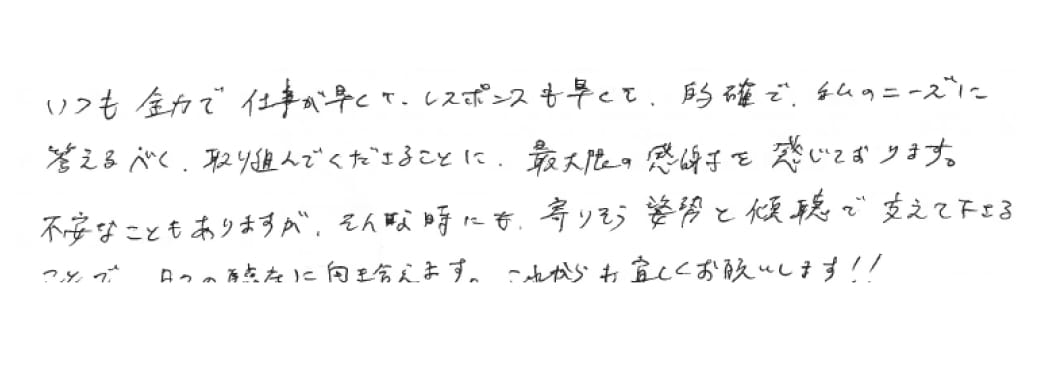 いつも全力で仕事が早くて、レスポンスも早くて、的確で、私のニーズに
答えるべく、取り組んでくださることに、最大限の感謝を感じております。
不安なこともありますが、そんな時にも、寄りそう姿勢と傾聴で支えて下さる
ことで、日々の に向き合えます。これからも宜しくお願いします!!